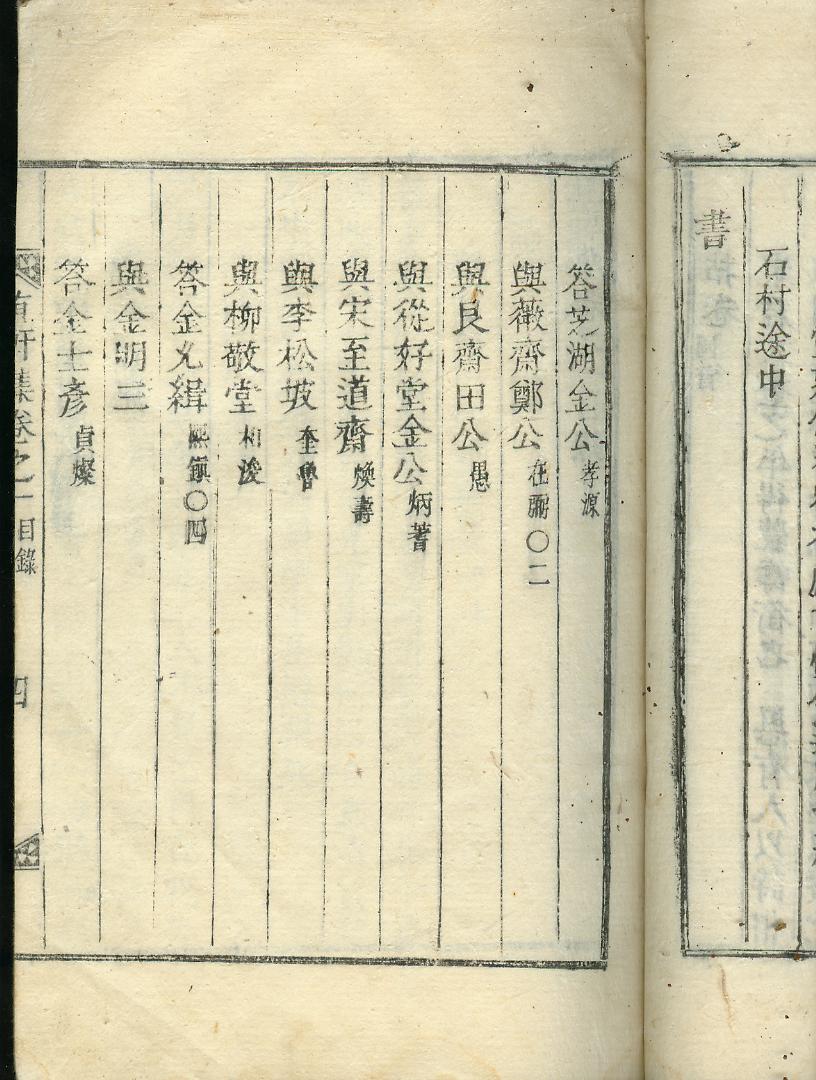 石村途中
書
答芝湖金公 孝源
與薇齋鄭公 在㢞〇二
與艮齋田公 愚
與從好堂金公 炳蓍
與宋至道齋 煥壽
與李松坡 奎
與柳敬堂 相浚
答金允緝 熙鎭〇四
與金明三
答金士彥 貞燦
軒集卷之一 目錄 四